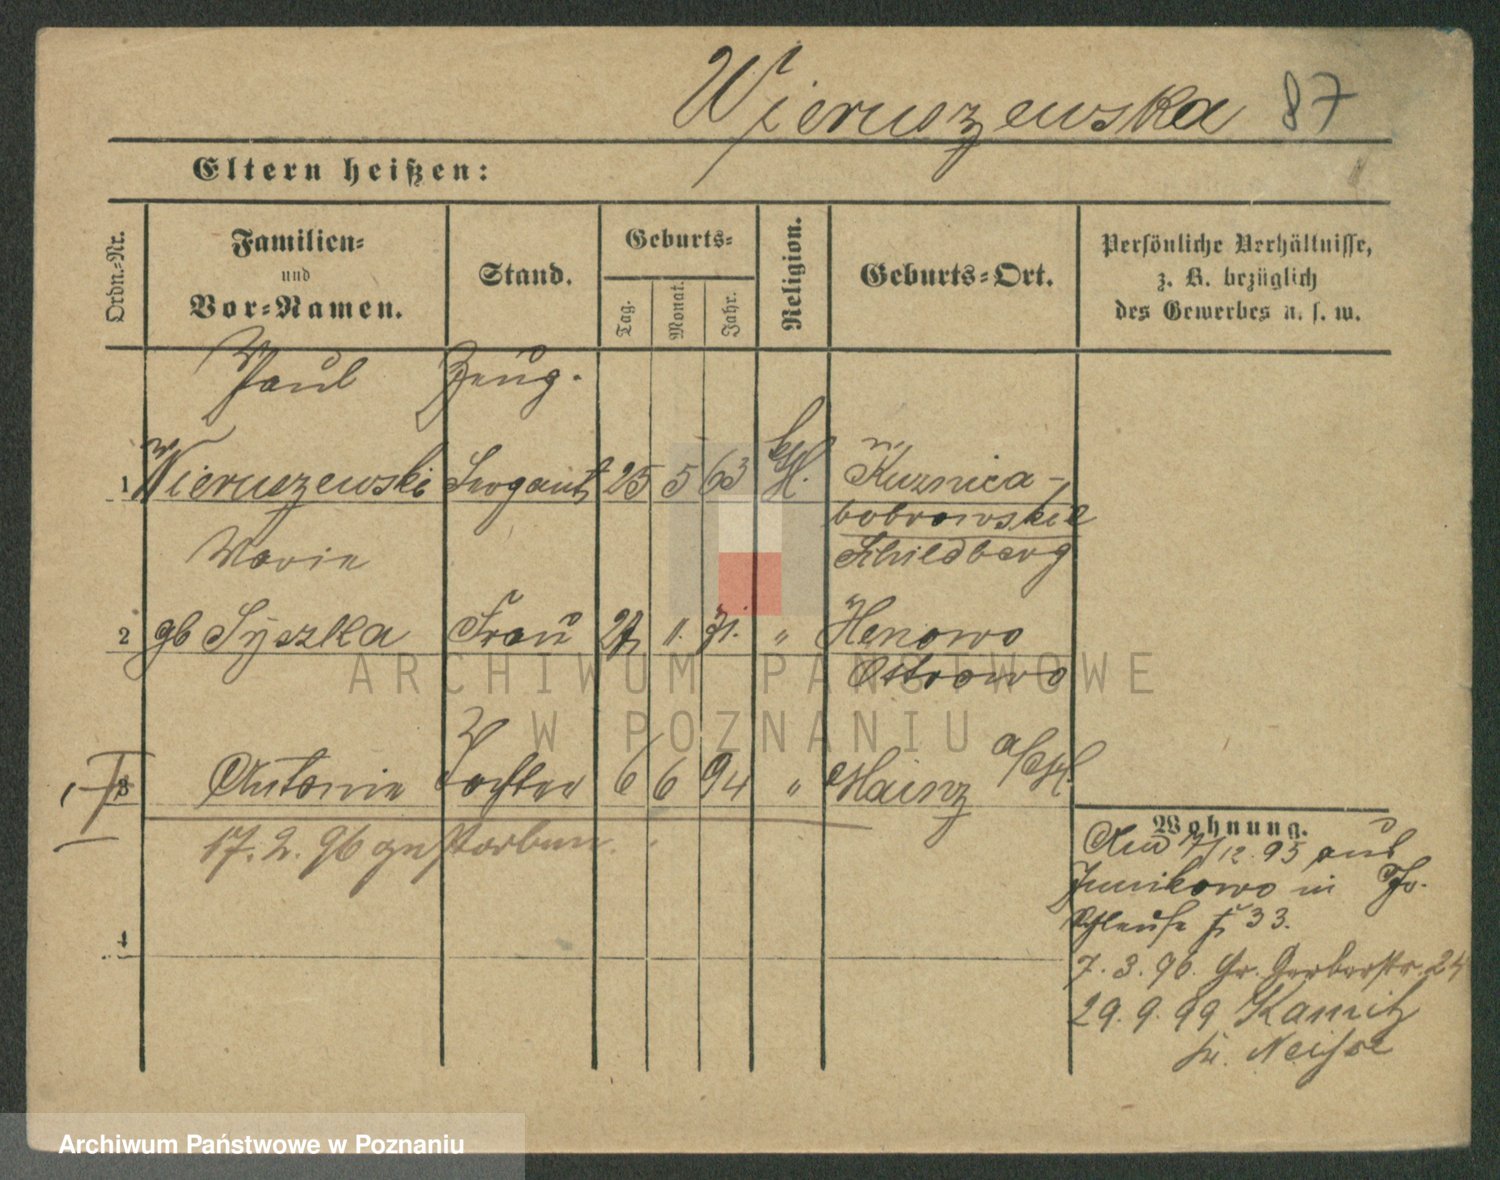 Wieruszewska 87
Eltern heißen:
Ordn.-Nr.
Familien-
und
Vor-Namen.
Stand.
Geburts-
Tag.
Monat.
Jahr.
Religion.
Geburts-Ort.
Persönliche Verhältnisse,
z. B. bezüglich
des Gewerbes u. s. w.
Paul Zeug.
1 Wieruszewski Sergant 25 5 63 kath. Kuznica-
bobrowskie
Marie Schildberg
2 gb Syszka Frau 27 11. 71. " Henowo
Ostrowo
3 Antonie Tochter 6 6 94 " Mainz a/M.
17.2.96 gestorben.
4
Wohnung.
12.95 aus
Junikowo in
Schleuse 33.
7.3.96. Gr. Gerberstr. 24
29.9.99 Kamitz
Kr. Neisse
ARCHIWUM PAŃSTWOWE
W POZNANIU
Archiwum Państwowe w Poznaniu